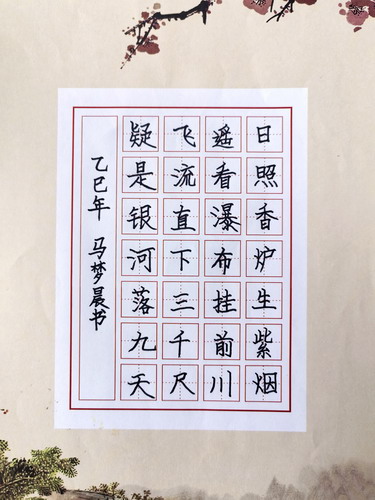 日照香炉生紫烟
遥看瀑布挂前川
飞流直下三千尺
疑是银河落九天
乙巳年 马梦晨书